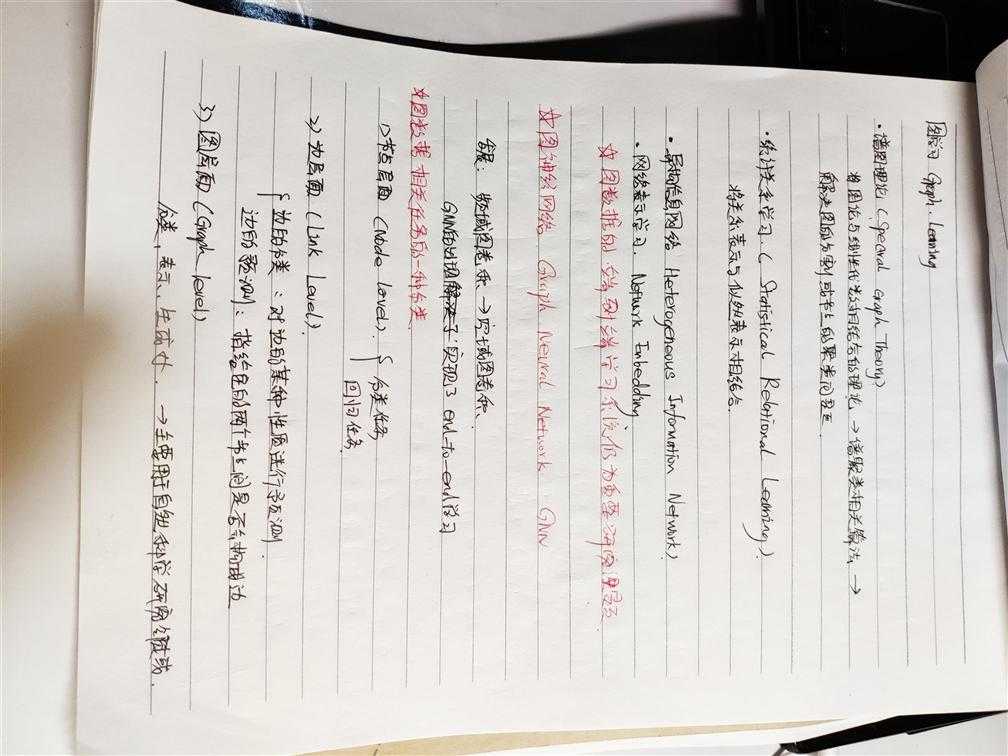 图学习 Graph Learning
·谱图理论 (Spectral Graph Theory)
图论与线性代数相结合的理论 → 谱聚类相关算法 →
解决图的分割或节点的聚类问题
·统计关系学习 (Statistical Relational Learning)
将关系表示与似然表示相结合
·异构信息网络 Heterogeneous Information Network)
·网络表示学习. Network Embedding
☆图数据的端到端学习系统仍为重要研究课题
☆图神经网络 Graph Neural Network GNN
发展: 频域图卷积 → 空域图卷积
GNN的出现 实现了 end-to-end学习
☆图数据相关任务的一种分类
1) 节点层面 (Node Level). { 分类任务
回归任务.
2) 边层面 (Link Level).
{ 边的分类: 对边的某种性质进行预测.
边的预测: 指给定的两个节点间是否会构成边
3) 图层面 (Graph level)
分类, 表示, 生成等. → 主要用于自然科学研究领域.